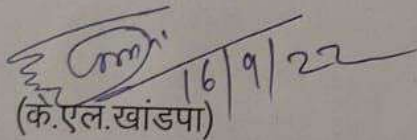 16/9/22
(के.एल.खांडपा)